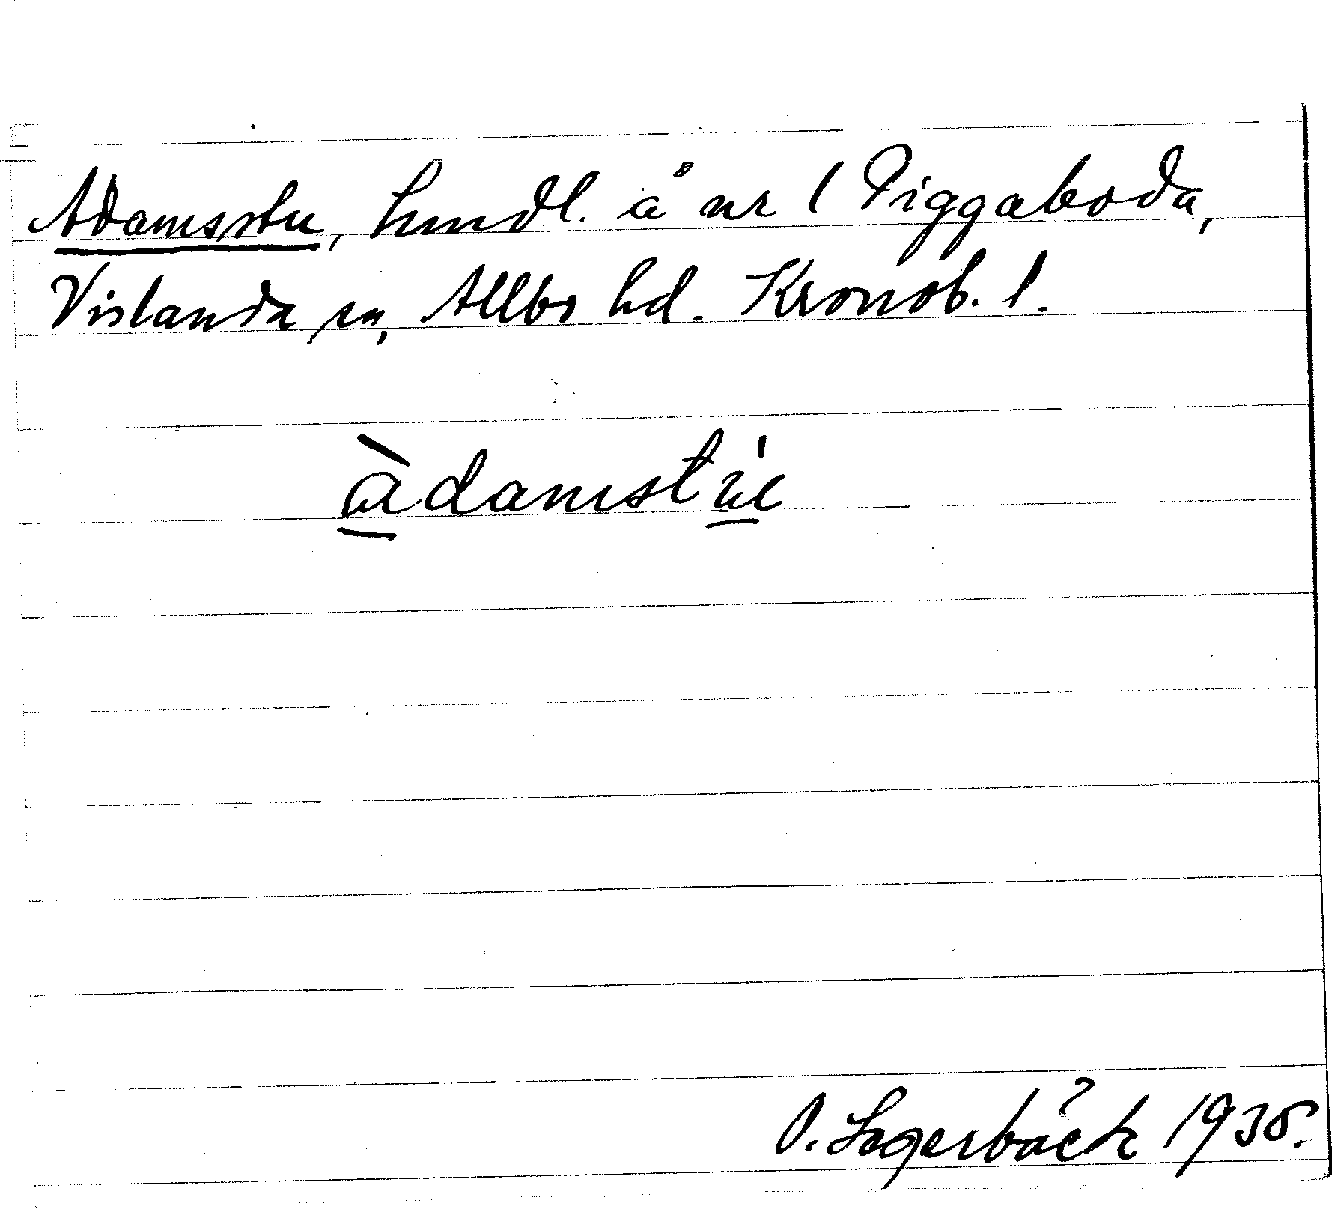 Adamsstu, hmdl. å nr 1 Piggaboda,
Vislanda sn, Allbo hd. Kronob. l.
àdamstu̍
O. Lagerbäck 1935.